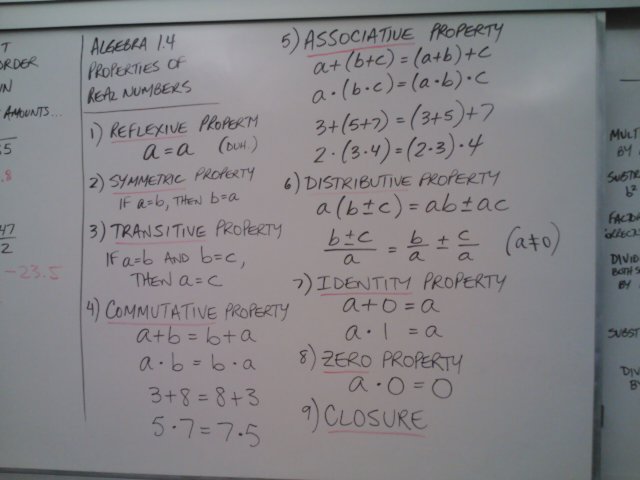 T
ORDER
IN
AMOUNTS...
.8
47
2
-23.5
ALGEBRA 1.4
PROPERTIES OF
REAL NUMBERS
1) REFLEXIVE PROPERTY
a=a (DUH.)
2) SYMMETRIC PROPERTY
IF a=b, THEN b=a
3) TRANSITIVE PROPERTY
IF a=b AND b=c,
THEN a=c
4) COMMUTATIVE PROPERTY
a+b=b+a
a·b=b·a
3+8=8+3
5·7=7·5
5) ASSOCIATIVE PROPERTY
a+(b+c)=(a+b)+c
a·(b·c)=(a·b)·c
3+(5+7)=(3+5)+7
2·(3·4)=(2·3)·4
6) DISTRIBUTIVE PROPERTY
a(b±c)=ab±ac
b±c/a = b/a ± c/a (a≠0)
7) IDENTITY PROPERTY
a+0=a
a·1=a
8) ZERO PROPERTY
a·0=0
9) CLOSURE
MULT
BY
SUBTR
b²
DIVID
BOTH S
BY
SUBST
DIV
BY